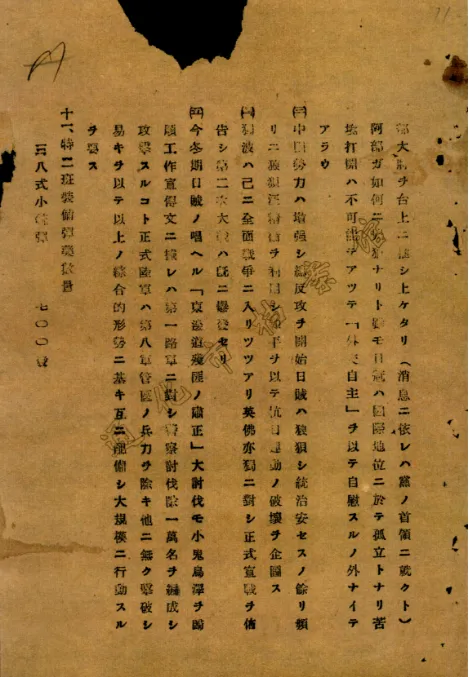 部大將ヲ台上ニ シ上ケタリ（消息ニ依レハ黨ノ首領ニ戴クト）
阿部カ如何ニ ナリト モ日賊ハ國際地位ニ於テ孤立トナリ苦
打開ハ不可 テアツテ「外 自主」ヲ以テ自慰スルノ外ナイテ
アラウ
中國勢力ハ増强シ 反攻ヲ開始日賊ハ狼狽シ統治安セスノ餘リ頻
リニ 汪精衛ヲ利用シ 平ヲ以テ抗日運動ノ破壞ヲ企圖ス
波ハ已ニ全面戰爭ニ入リツツアリ英佛亦獨ニ對シ正式宣戰ヲ佈
告シ第二次大戰ハ既ニ爆發セリ
今冬期日賊ノ唱ヘル「東 道殘匪ノ肅正」大討伐モ小鬼烏澤ヲ
工作宣傳文ニ據レハ第一路軍ニ對シ警察討伐隊一萬名ヲ編成シ
攻擊スルコト正式陸軍ハ第八軍管區ノ兵力ヲ除キ他ニ無ク擊破シ
易キヲ以テ以上ノ綜合的形勢ニ基キ互ニ配備シ大規模ニ行動スル
ヲ要ス
十一、特ニ 裝備彈藥數量
三八式小銃彈 七〇〇發
通化市档案馆